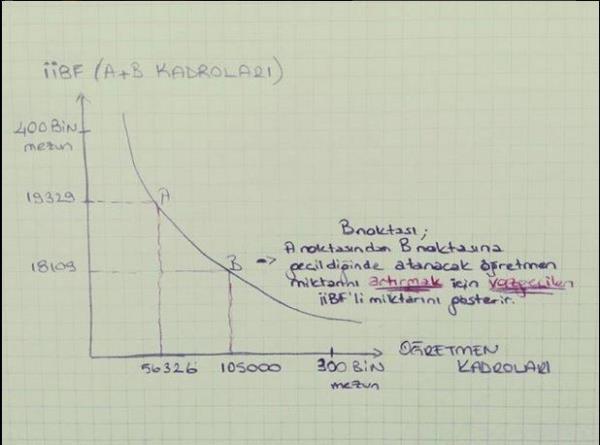 İİBF (A+B KADROLARI)
400 BİN
mezun
19329
A
18109
B
Bnoktası;
A noktasından B noktasına
geçildiğinde atanacak öğretmen
miktarını artırmak için vazgeçilen
İİBF'li miktarını gösterir.
56326 105000 300 BİN
mezun
ÖĞRETMEN
KADROLARI